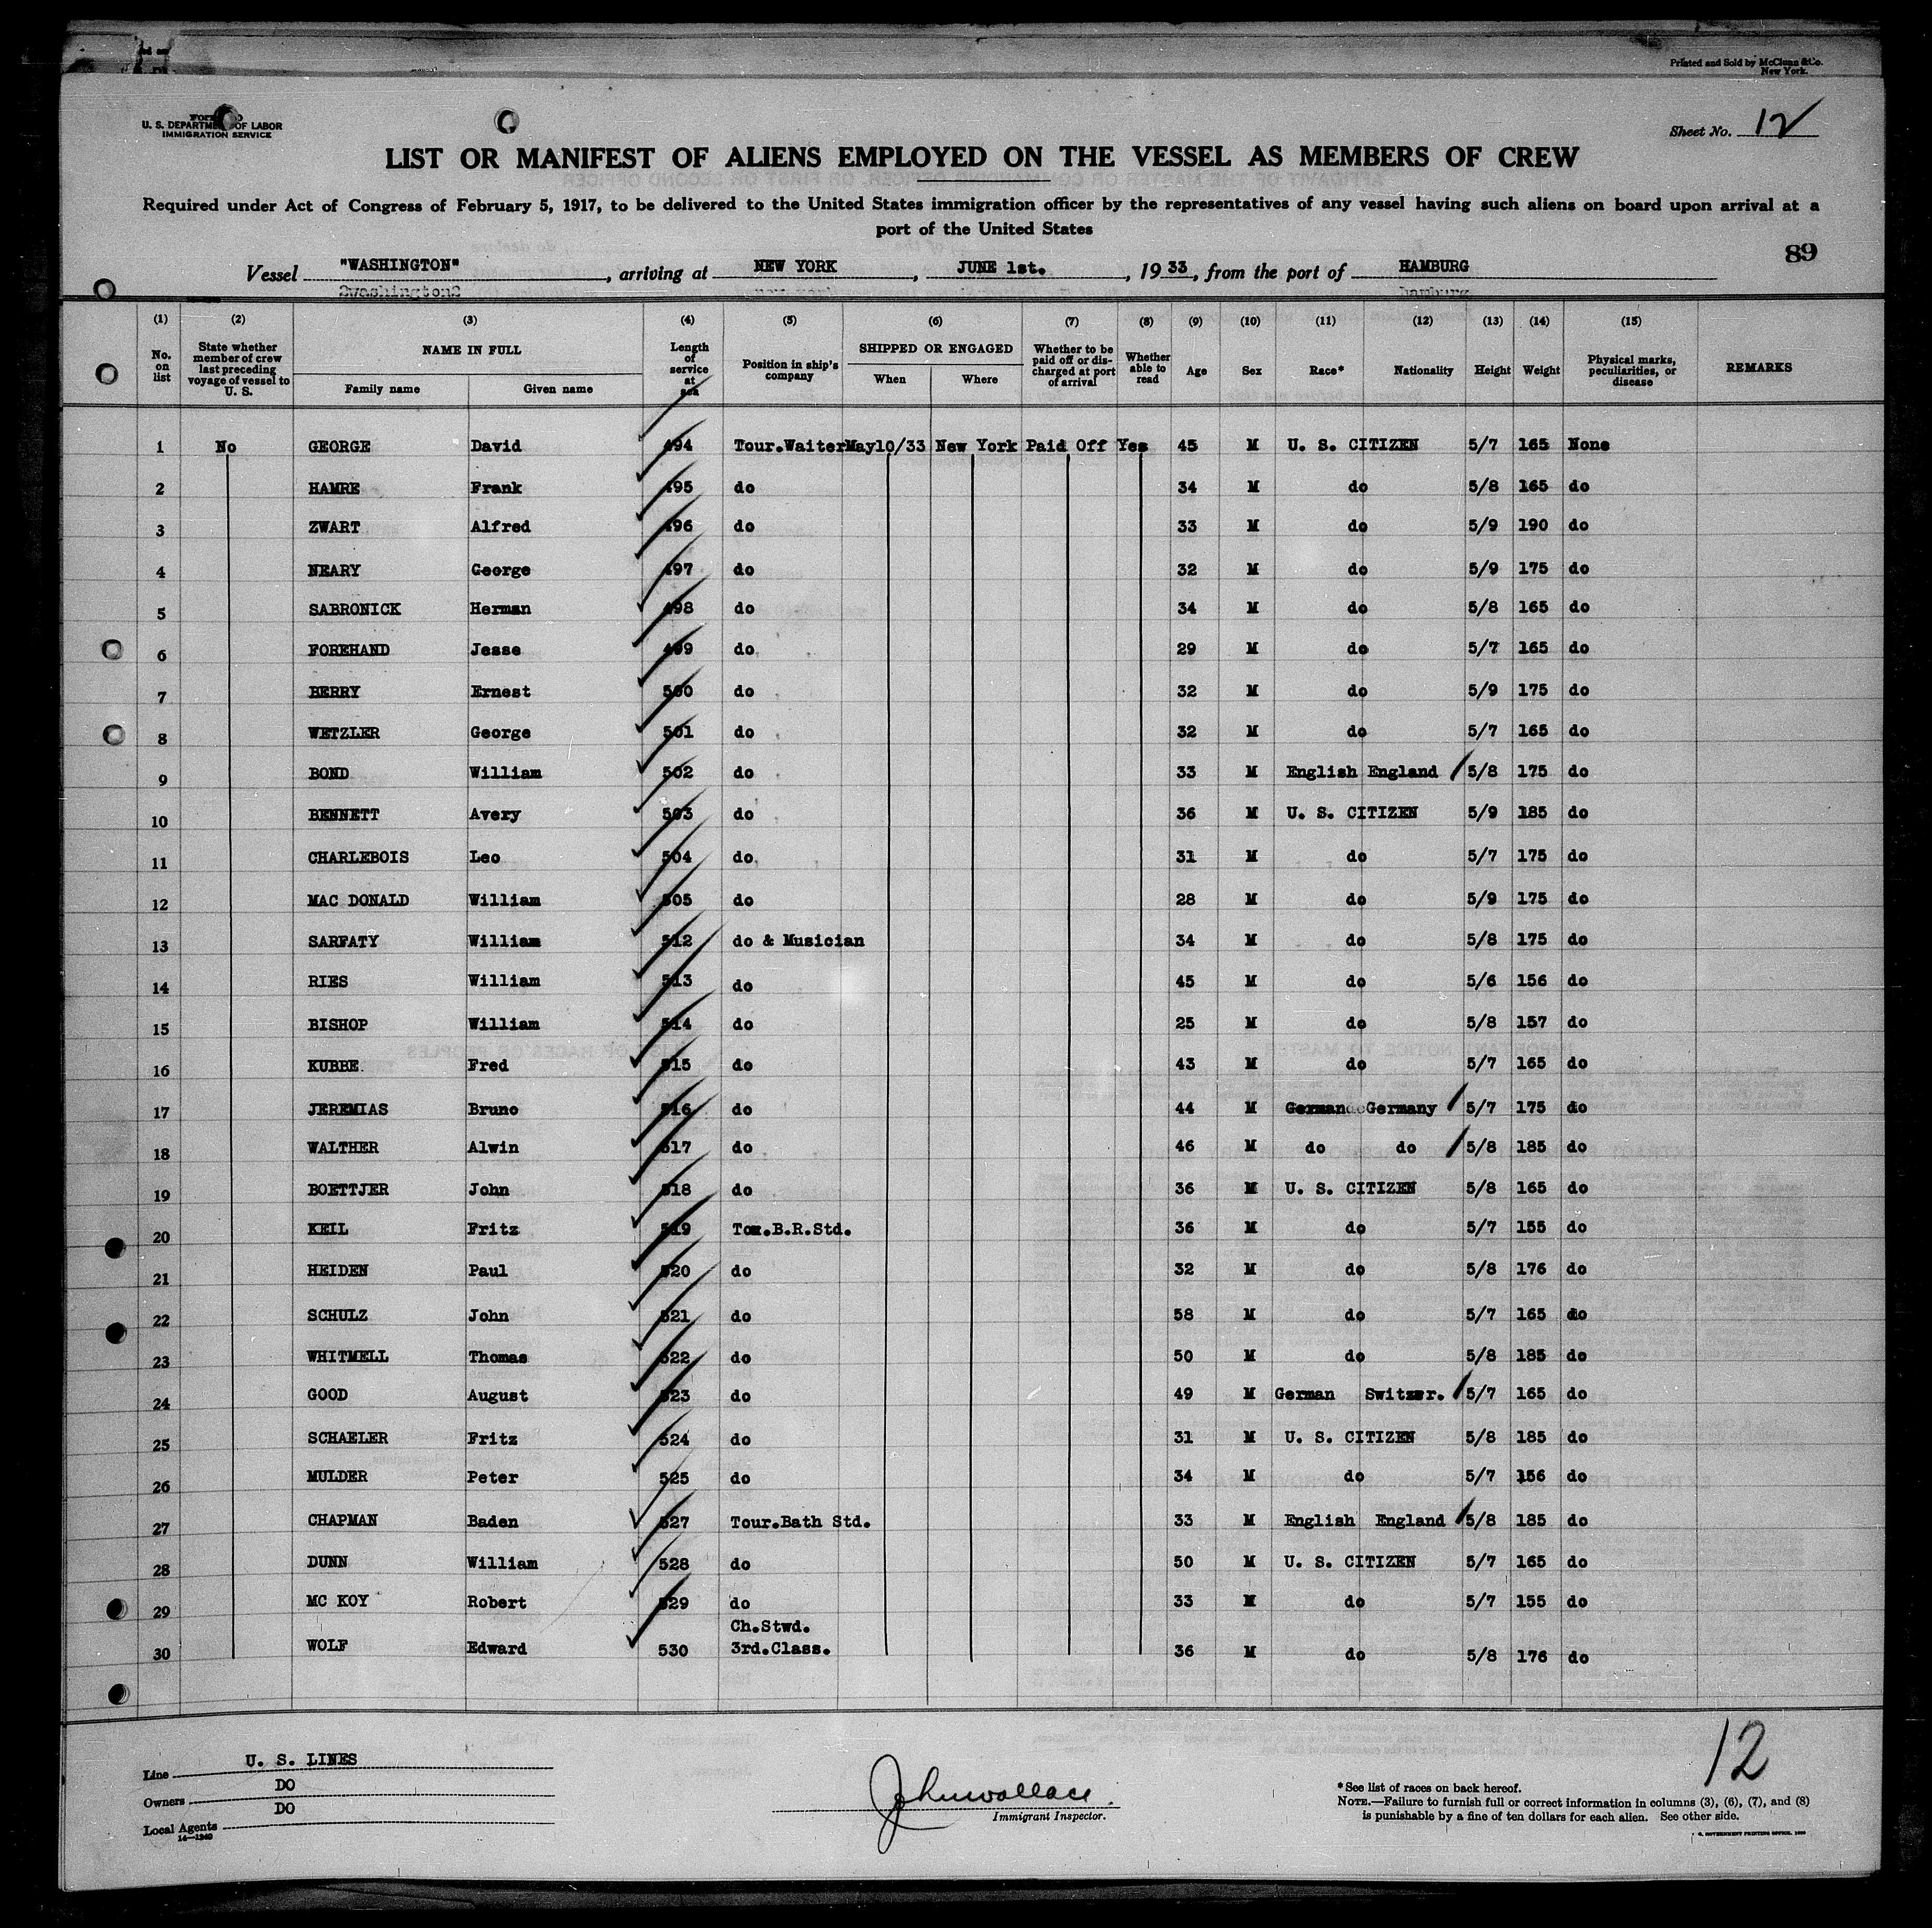 Printed and Sold by McClunn & Co.
New York.
U. S. DEPARTMENT OF LABOR
IMMIGRATION SERVICE
Sheet No. 12
LIST OR MANIFEST OF ALIENS EMPLOYED ON THE VESSEL AS MEMBERS OF CREW
Required under Act of Congress of February 5, 1917, to be delivered to the United States immigration officer by the representatives of any vessel having such aliens on board upon arrival at a
port of the United States
89
Vessel "WASHINGTON", arriving at NEW YORK, JUNE 1st., 1933, from the port of HAMBURG
(1) (2) (3) (4) (5) (6) (7) (8) (9) (10) (11) (12) (13) (14) (15)
No. on list State whether member of crew last preceding voyage of vessel to U. S. NAME IN FULL Family name Given name Length of service at sea Position in ship's company SHIPPED OR ENGAGED When Where Whether to be paid off or discharged at port of arrival Whether able to read Age Sex Race* Nationality Height Weight Physical marks, peculiarities, or disease REMARKS
1 No GEORGE David 494 Tour.Waiter May10/33 New York Paid Off Yes 45 M U. S. CITIZEN 5/7 165 None
2 HAMRE Frank 495 do 34 M do 5/8 165 do
3 ZWART Alfred 496 do 33 M do 5/9 190 do
4 NEARY George 497 do 32 M do 5/9 175 do
5 SABRONICK Herman 498 do 34 M do 5/8 165 do
6 FOREHAND Jesse 499 do 29 M do 5/7 165 do
7 BERRY Ernest 500 do 32 M do 5/9 175 do
8 WETZLER George 501 do 32 M do 5/7 165 do
9 BOND William 502 do 33 M English England 5/8 175 do
10 BENNETT Avery 503 do 36 M U. S. CITIZEN 5/9 185 do
11 CHARLEBOIS Leo 504 do 31 M do 5/7 175 do
12 MAC DONALD William 505 do 28 M do 5/9 175 do
13 SARFATY William 512 do & Musician 34 M do 5/8 175 do
14 RIES William 513 do 45 M do 5/6 156 do
15 BISHOP William 514 do 25 M do 5/8 157 do
16 KUBBE Fred 515 do 43 M do 5/7 165 do
17 JEREMIAS Bruno 516 do 44 M German Germany 5/7 175 do
18 WALTHER Alwin 517 do 46 M do do 5/8 185 do
19 BOETTJER John 518 do 36 M U. S. CITIZEN 5/8 165 do
20 KEIL Fritz 519 Tor.B.R.Std. 36 M do 5/7 155 do
21 HEIDEN Paul 520 do 32 M do 5/8 176 do
22 SCHULZ John 521 do 58 M do 5/7 165 do
23 WHITMELL Thomas 522 do 50 M do 5/8 185 do
24 GOOD August 523 do 49 M German Switzer. 5/7 165 do
25 SCHAELER Fritz 524 do 31 M U. S. CITIZEN 5/8 185 do
26 MULDER Peter 525 do 34 M do 5/7 156 do
27 CHAPMAN Baden 527 Tour.Bath Std. 33 M English England 5/8 185 do
28 DUNN William 528 do 50 M U. S. CITIZEN 5/7 165 do
29 MC KOY Robert 529 do 33 M do 5/7 155 do
30 WOLF Edward 530 Ch.Stwd. 3rd.Class. 36 M do 5/8 176 do
12
Line U. S. LINES
Owners DO
Local Agents DO
14—1240
John Wallace.
Immigrant Inspector.
*See list of races on back hereof.
NOTE.—Failure to furnish full or correct information in columns (3), (6), (7), and (8)
is punishable by a fine of ten dollars for each alien. See other side.